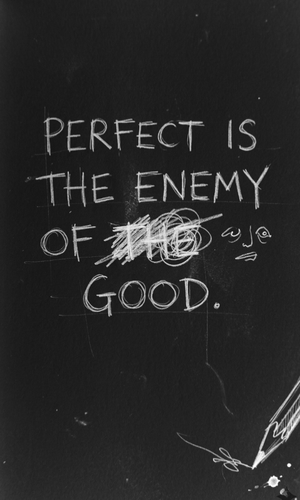 PERFECT IS
THE ENEMY
OF THE
GOOD.